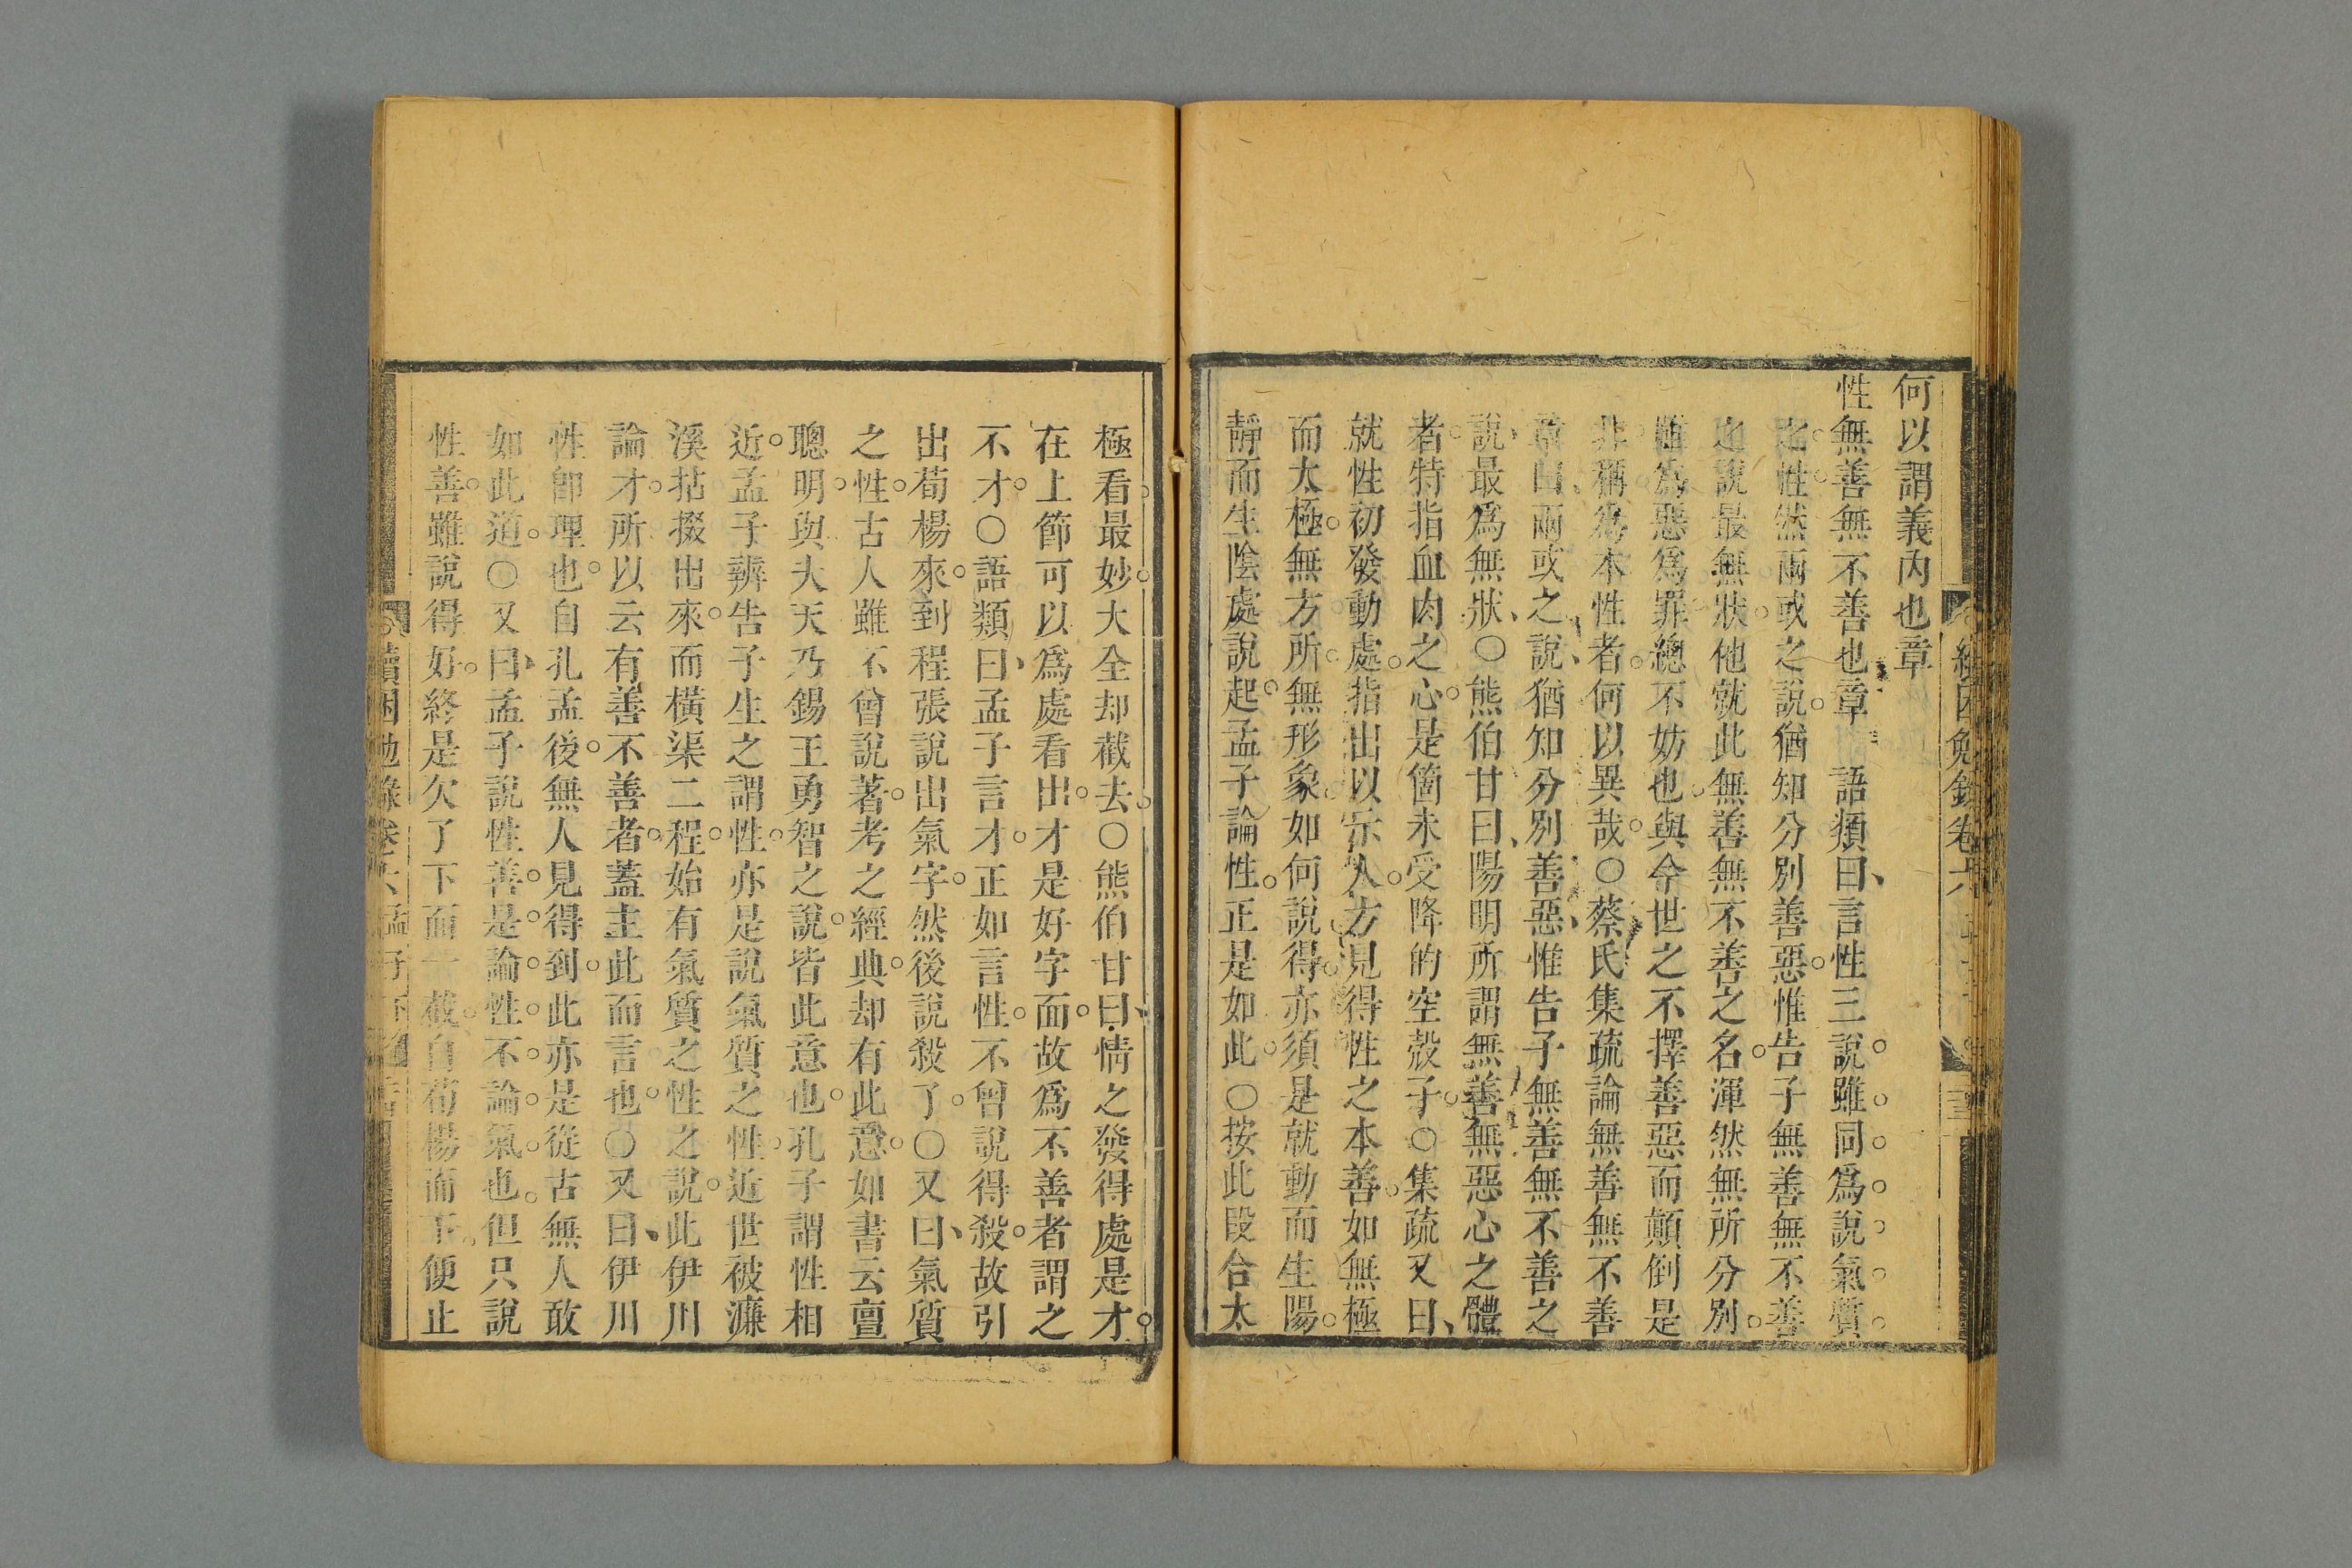 何以謂義內也章
性無善無不善也章　語類曰言性三說雖同爲說氣質
之性然兩或之說猶知分別善惡惟告子無善無不善
之說最無狀他就此無善無不善之名渾然無所分別
雖爲惡爲罪總不妨也與今世之不擇善惡而顛倒是
非稱爲本性者何以異哉○蔡氏集疏論無善無不善
章曰兩或之說猶知分別善惡惟告子無善無不善之
說最爲無狀○熊伯甘曰陽明所謂無善無惡心之體
者特指血肉之心是箇未受降的空殼子○集疏又曰
就性初發動處指出以示人方見得性之本善如無極
而太極無方所無形象如何說得亦須是就動而生陽
靜而生陰處說起孟子論性正是如此○按此段合太
極看最妙大全却截去○熊伯甘曰情之發得處是才
在上節可以爲處看出才是好字面故爲不善者謂之
不才○語類曰孟子言才正如言性不曾說得殺故引
出荀楊來到程張說出氣字然後說殺了○又曰氣質
之性古人雖不曾說著考之經典却有此意如書云亶
聰明與夫天乃錫王勇智之說皆此意也孔子謂性相
近孟子辨告子生之謂性亦是說氣質之性近世被濂
溪拈掇出來而橫渠二程始有氣質之性之說此伊川
論才所以云有善不善者蓋主此而言也○又曰伊川
性卽理也自孔孟後無人見得到此亦是從古無人敢
如此道○又曰孟子說性善是論性不論氣也但只說
性善雖說得好終是欠了下面一截自荀楊而下便止
續困勉錄卷六 孟子下